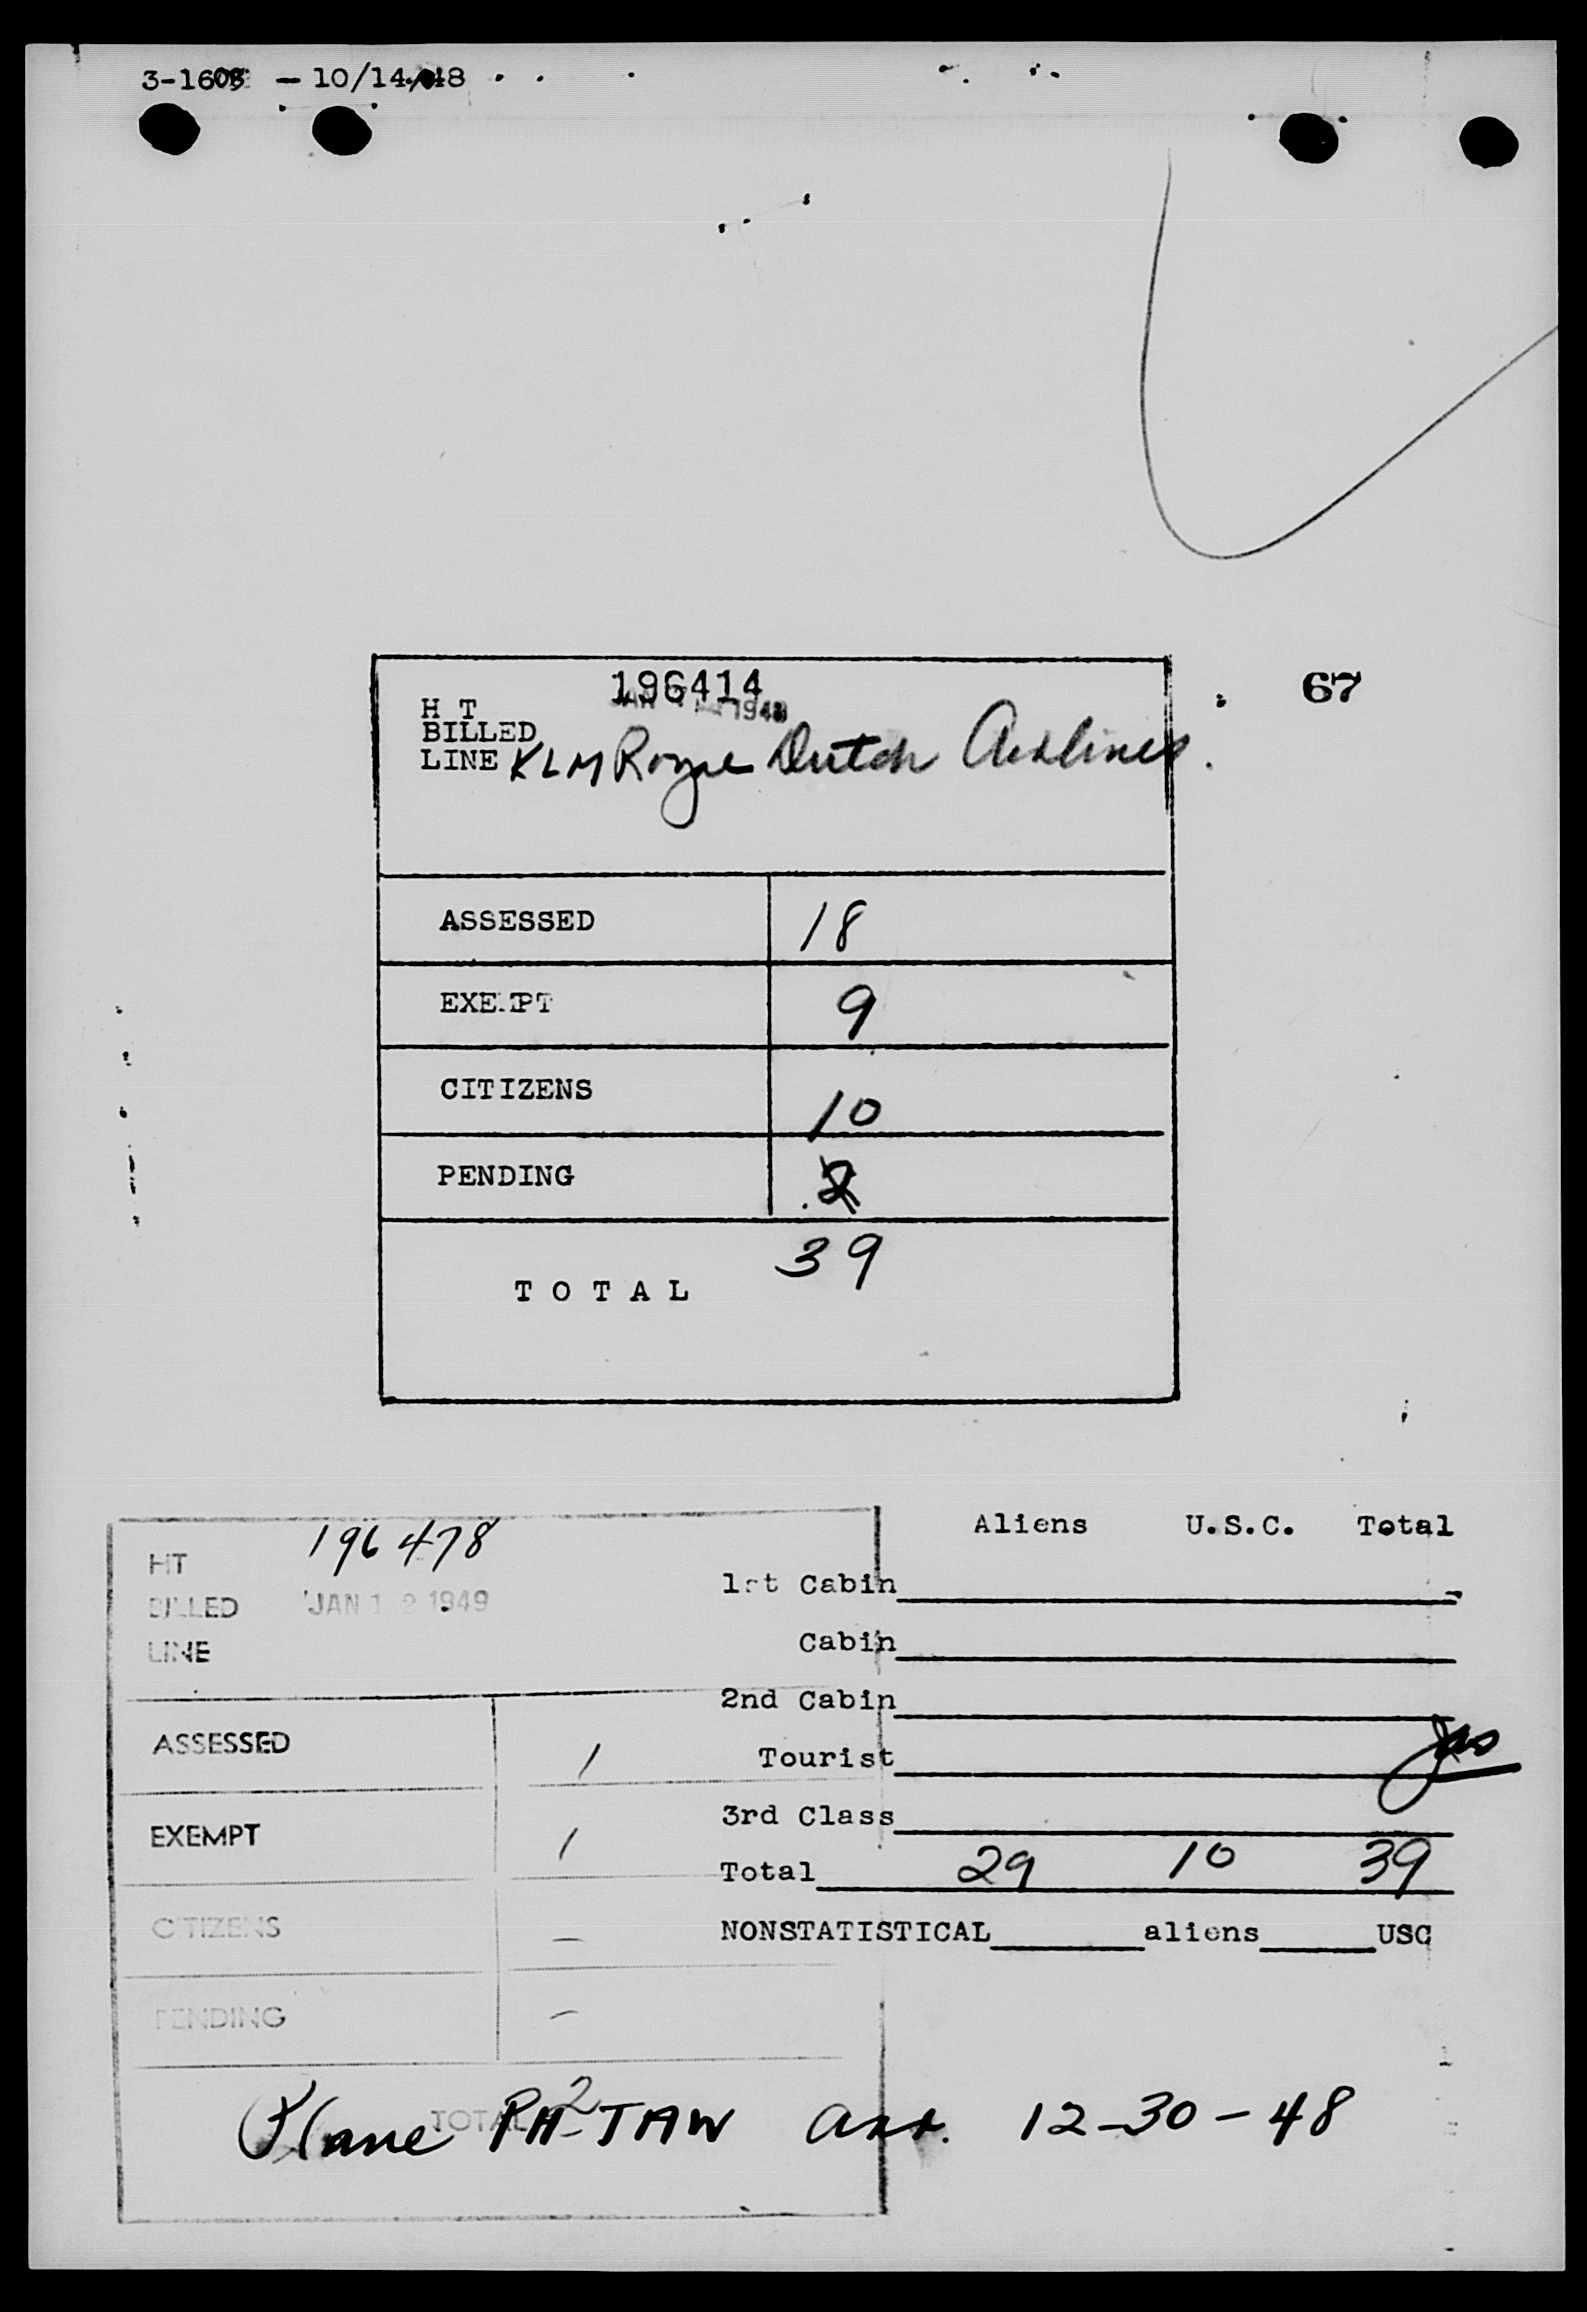 3-1609 - 10/14/48
67
196414
H T
BILLED 1949
LINE KLM Royal Dutch Airlines.
ASSESSED 18
EXEMPT 9
CITIZENS 10
PENDING 2
TOTAL 39
Aliens U.S.C. Total
1st Cabin
Cabin
2nd Cabin
Tourist
3rd Class
Total 29 10 39
NONSTATISTICAL aliens USC
HT 196478
BILLED JAN 12 1949
LINE
ASSESSED 1
EXEMPT 1
CITIZENS -
PENDING -
TOTAL 2
Plane PH-TAW arr. 12-30-48